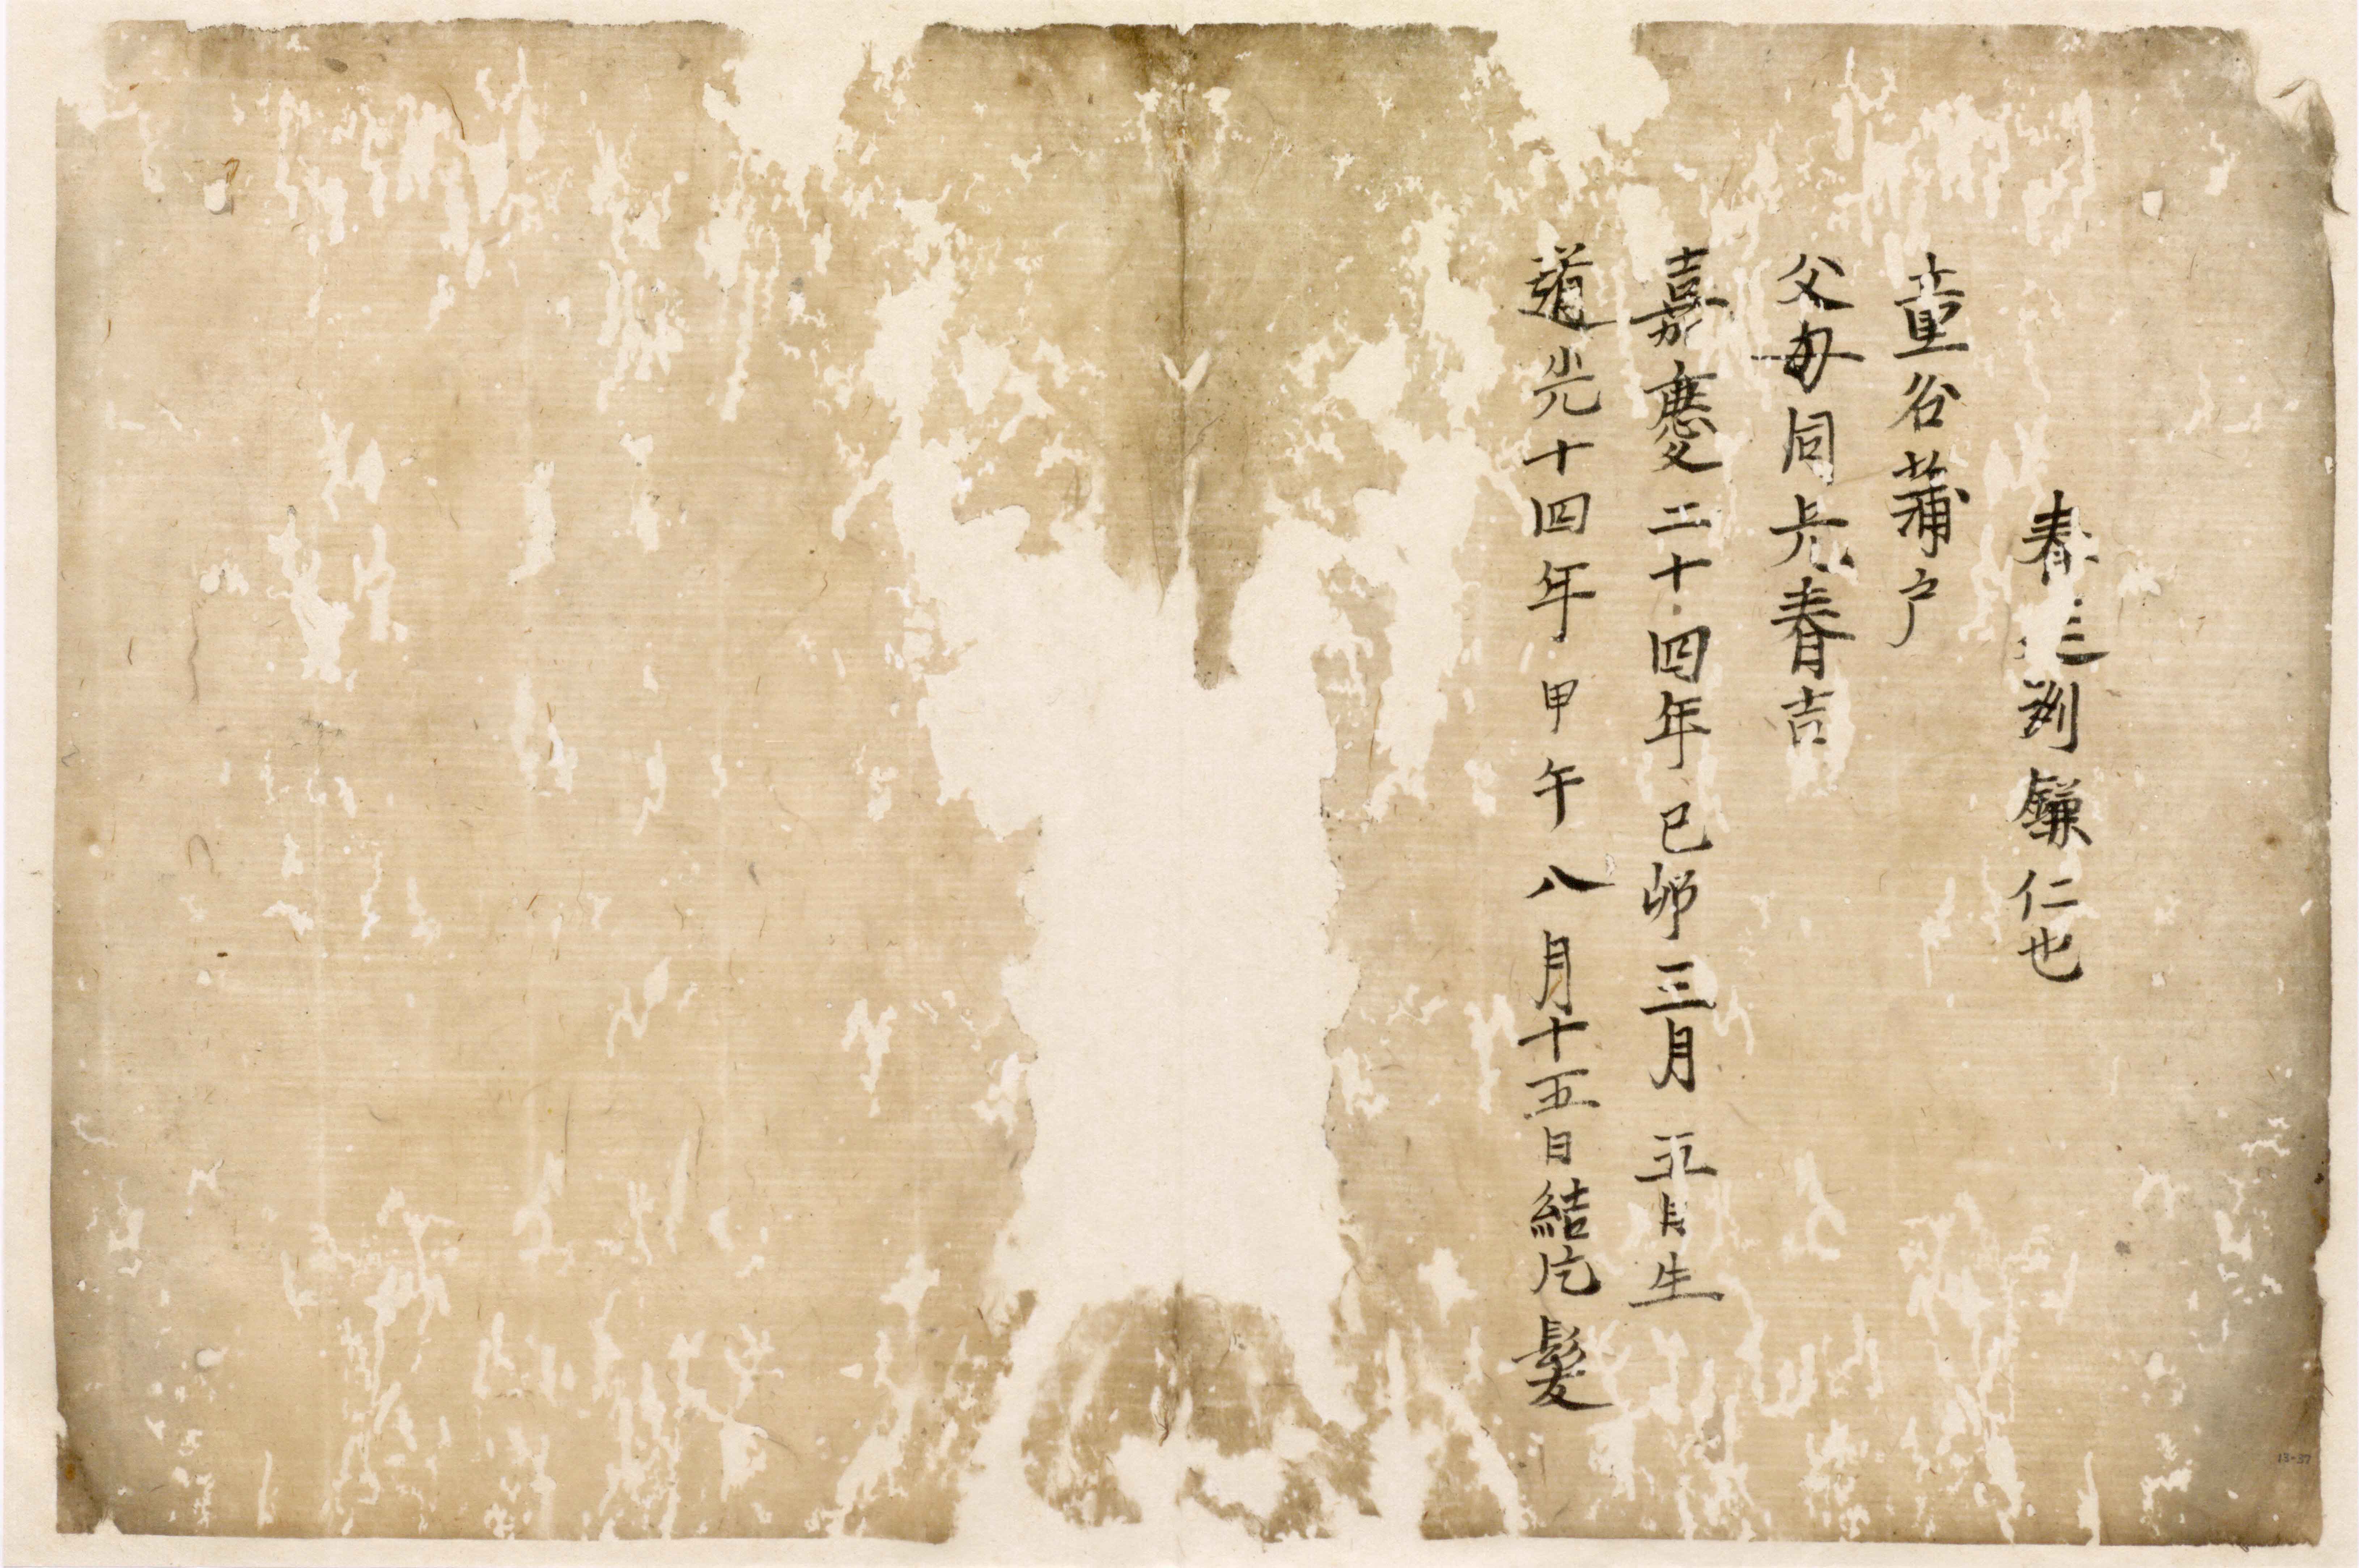 春剡鎌仁也
童名蒲户
父母同氏春吉
嘉慶二十四年己卯三月日生
道光十四年甲午八月十五日結片髪
13-37